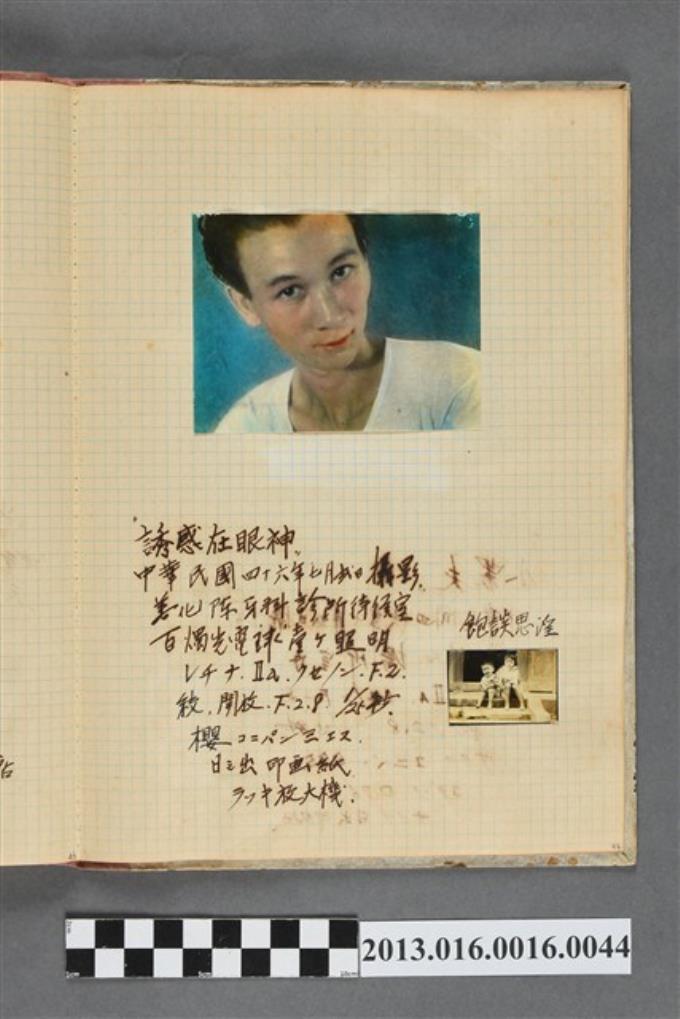 誘惑在眼神
中華民國四十六年七月 日攝影.
善化陳牙科診所待候室
百燭光電球壹ケ照明
レチナ.IIa.クセノン.F.2.
絞.開放.F.2.8
櫻 コニパン ミ エス.
日之出印画紙
ラッキ放大機.
飽談思淫
占
2013.016.0016.0044